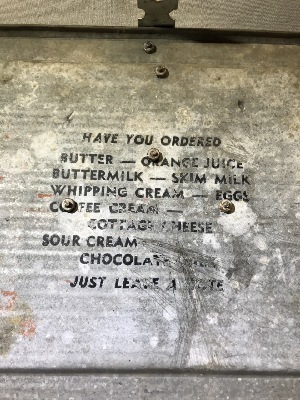 HAVE YOU ORDERED
BUTTER — ORANGE JUICE
BUTTERMILK — SKIM MILK
WHIPPING CREAM — EGGS
COFFEE CREAM —
COTTAGE CHEESE
SOUR CREAM
CHOCOLATE
JUST LEAVE A NOTE